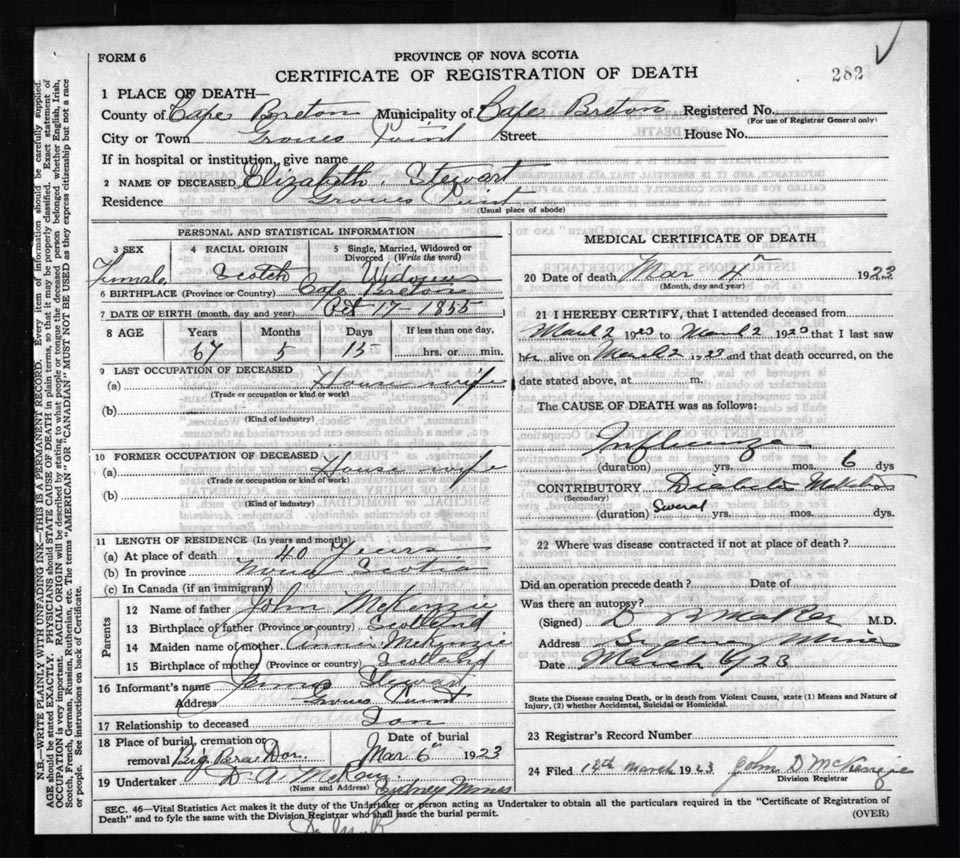 FORM 6
PROVINCE OF NOVA SCOTIA
CERTIFICATE OF REGISTRATION OF DEATH
282
1 PLACE OF DEATH—
County of Cape Breton Municipality of Cape Breton Registered No.
(For use of Registrar General only)
City or Town Groves Point Street House No.
If in hospital or institution, give name
2 NAME OF DECEASED Elizabeth Stewart
Residence Groves Point
(Usual place of abode)
PERSONAL AND STATISTICAL INFORMATION
3 SEX 4 RACIAL ORIGIN 5 Single, Married, Widowed or Divorced (Write the word)
Female Scotch Widow
6 BIRTHPLACE (Province or Country) Cape Breton
7 DATE OF BIRTH (month, day and year) Oct 17 1855
8 AGE Years Months Days If less than one day,
67 5 15 hrs. or min.
9 LAST OCCUPATION OF DECEASED
(a) House wife
(Trade or occupation or kind or work)
(b)
(Kind of industry)
10 FORMER OCCUPATION OF DECEASED
(a) House wife
(Trade or occupation or kind of work)
(b)
(Kind of industry)
11 LENGTH OF RESIDENCE (In years and months)
(a) At place of death 40 Years
(b) In province Nova Scotia
(c) In Canada (if an immigrant)
Parents
12 Name of father John McKenzie
13 Birthplace of father (Province or country) Scotland
14 Maiden name of mother Annie McKenzie
15 Birthplace of mother (Province or country) Scotland
16 Informant's name Stewart
Address Groves Point
17 Relationship to deceased Son
18 Place of burial, cremation or removal Date of burial
Mar 6th 1923
19 Undertaker D A McKay
(Name and Address) Sydney Mines
MEDICAL CERTIFICATE OF DEATH
20 Date of death Mar 4th 1923
(Month, day and year)
21 I HEREBY CERTIFY, that I attended deceased from
March 2 1923 to March 2 1923 that I last saw
her alive on March 2 1923 and that death occurred, on the
date stated above, at m.
The CAUSE OF DEATH was as follows:
Influenza
(duration) yrs. mos. 6 dys
CONTRIBUTORY Diabetes Mellitus
(Secondary)
(duration) Several yrs. mos. dys.
22 Where was disease contracted if not at place of death?
Did an operation precede death? Date of
Was there an autopsy?
(Signed) D M.D.
Address Sydney Mines
Date March 6/23
State the Disease causing Death, or in death from Violent Causes, state (1) Means and Nature of
Injury, (2) whether Accidental, Suicidal or Homicidal.
23 Registrar's Record Number
24 Filed 12th March 1923 John D McKenzie
Division Registrar
SEC. 46—Vital Statistics Act makes it the duty of the Undertaker or person acting as Undertaker to obtain all the particulars required in the "Certificate of Registration of
Death" and to fyle the same with the Division Registrar who shall issue the burial permit.
(OVER)
N.B.—WRITE PLAINLY WITH UNFADING INK—THIS IS A PERMANENT RECORD. Every item of information should be carefully supplied.
AGE should be stated EXACTLY. PHYSICIANS should STATE CAUSE OF DEATH in plain terms, so that it may be properly classified. Exact statement of
OCCUPATION is very important. RACIAL ORIGIN will be described by stating to what people or tongue the deceased person belonged whether English, Irish,
Scotch, French, German, Russian, Ruthenian, etc. The terms "AMERICAN" OR "CANADIAN" MUST NOT BE USED as they express citizenship but not a race
or people. See instructions on back of Certificate.